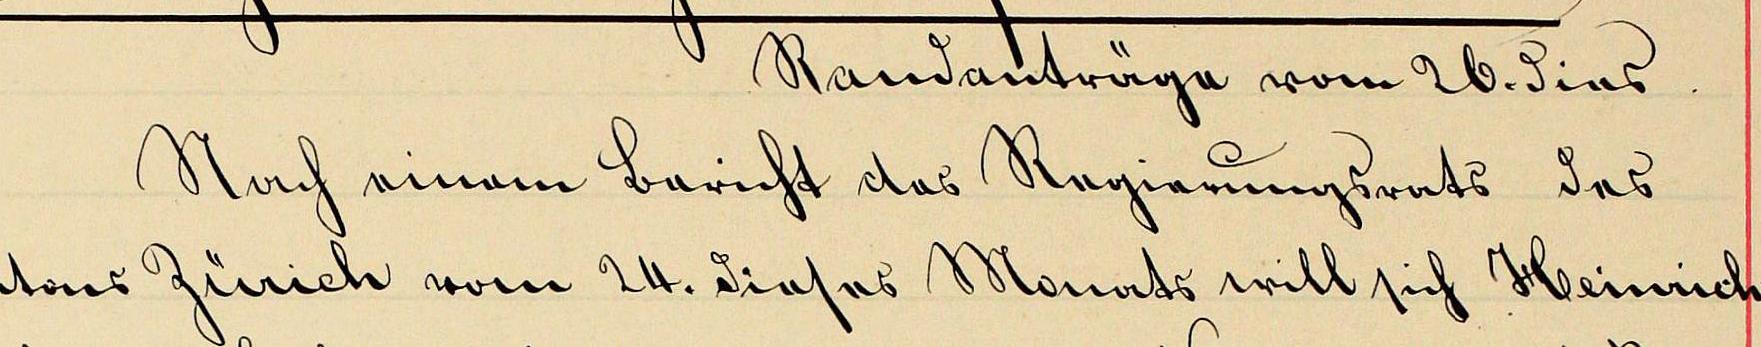 Randanträge vom 26. dies
Nach einem Bericht des Regierungsrats des
tons Zürich vom 24. dieses Monats will sich Heinrich